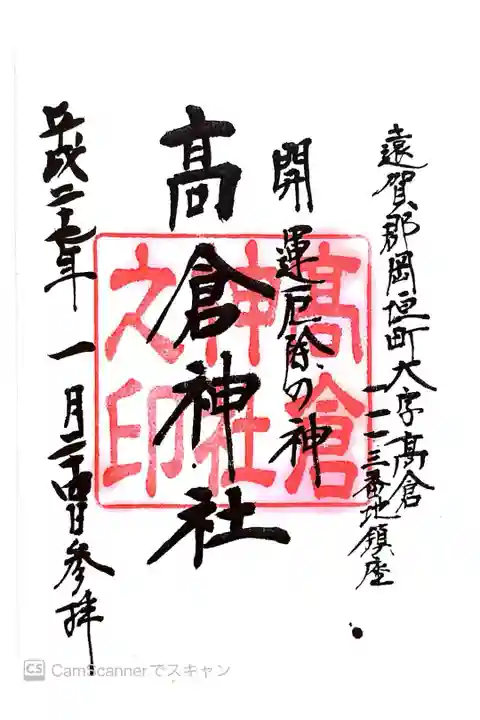 遠賀郡岡垣町大字高倉
一一一三番地鎮座
開運厄除の神
高倉神社
髙倉
神社
之印
平成二十七年 一月二十四日参拝
CS CamScannerでスキャン